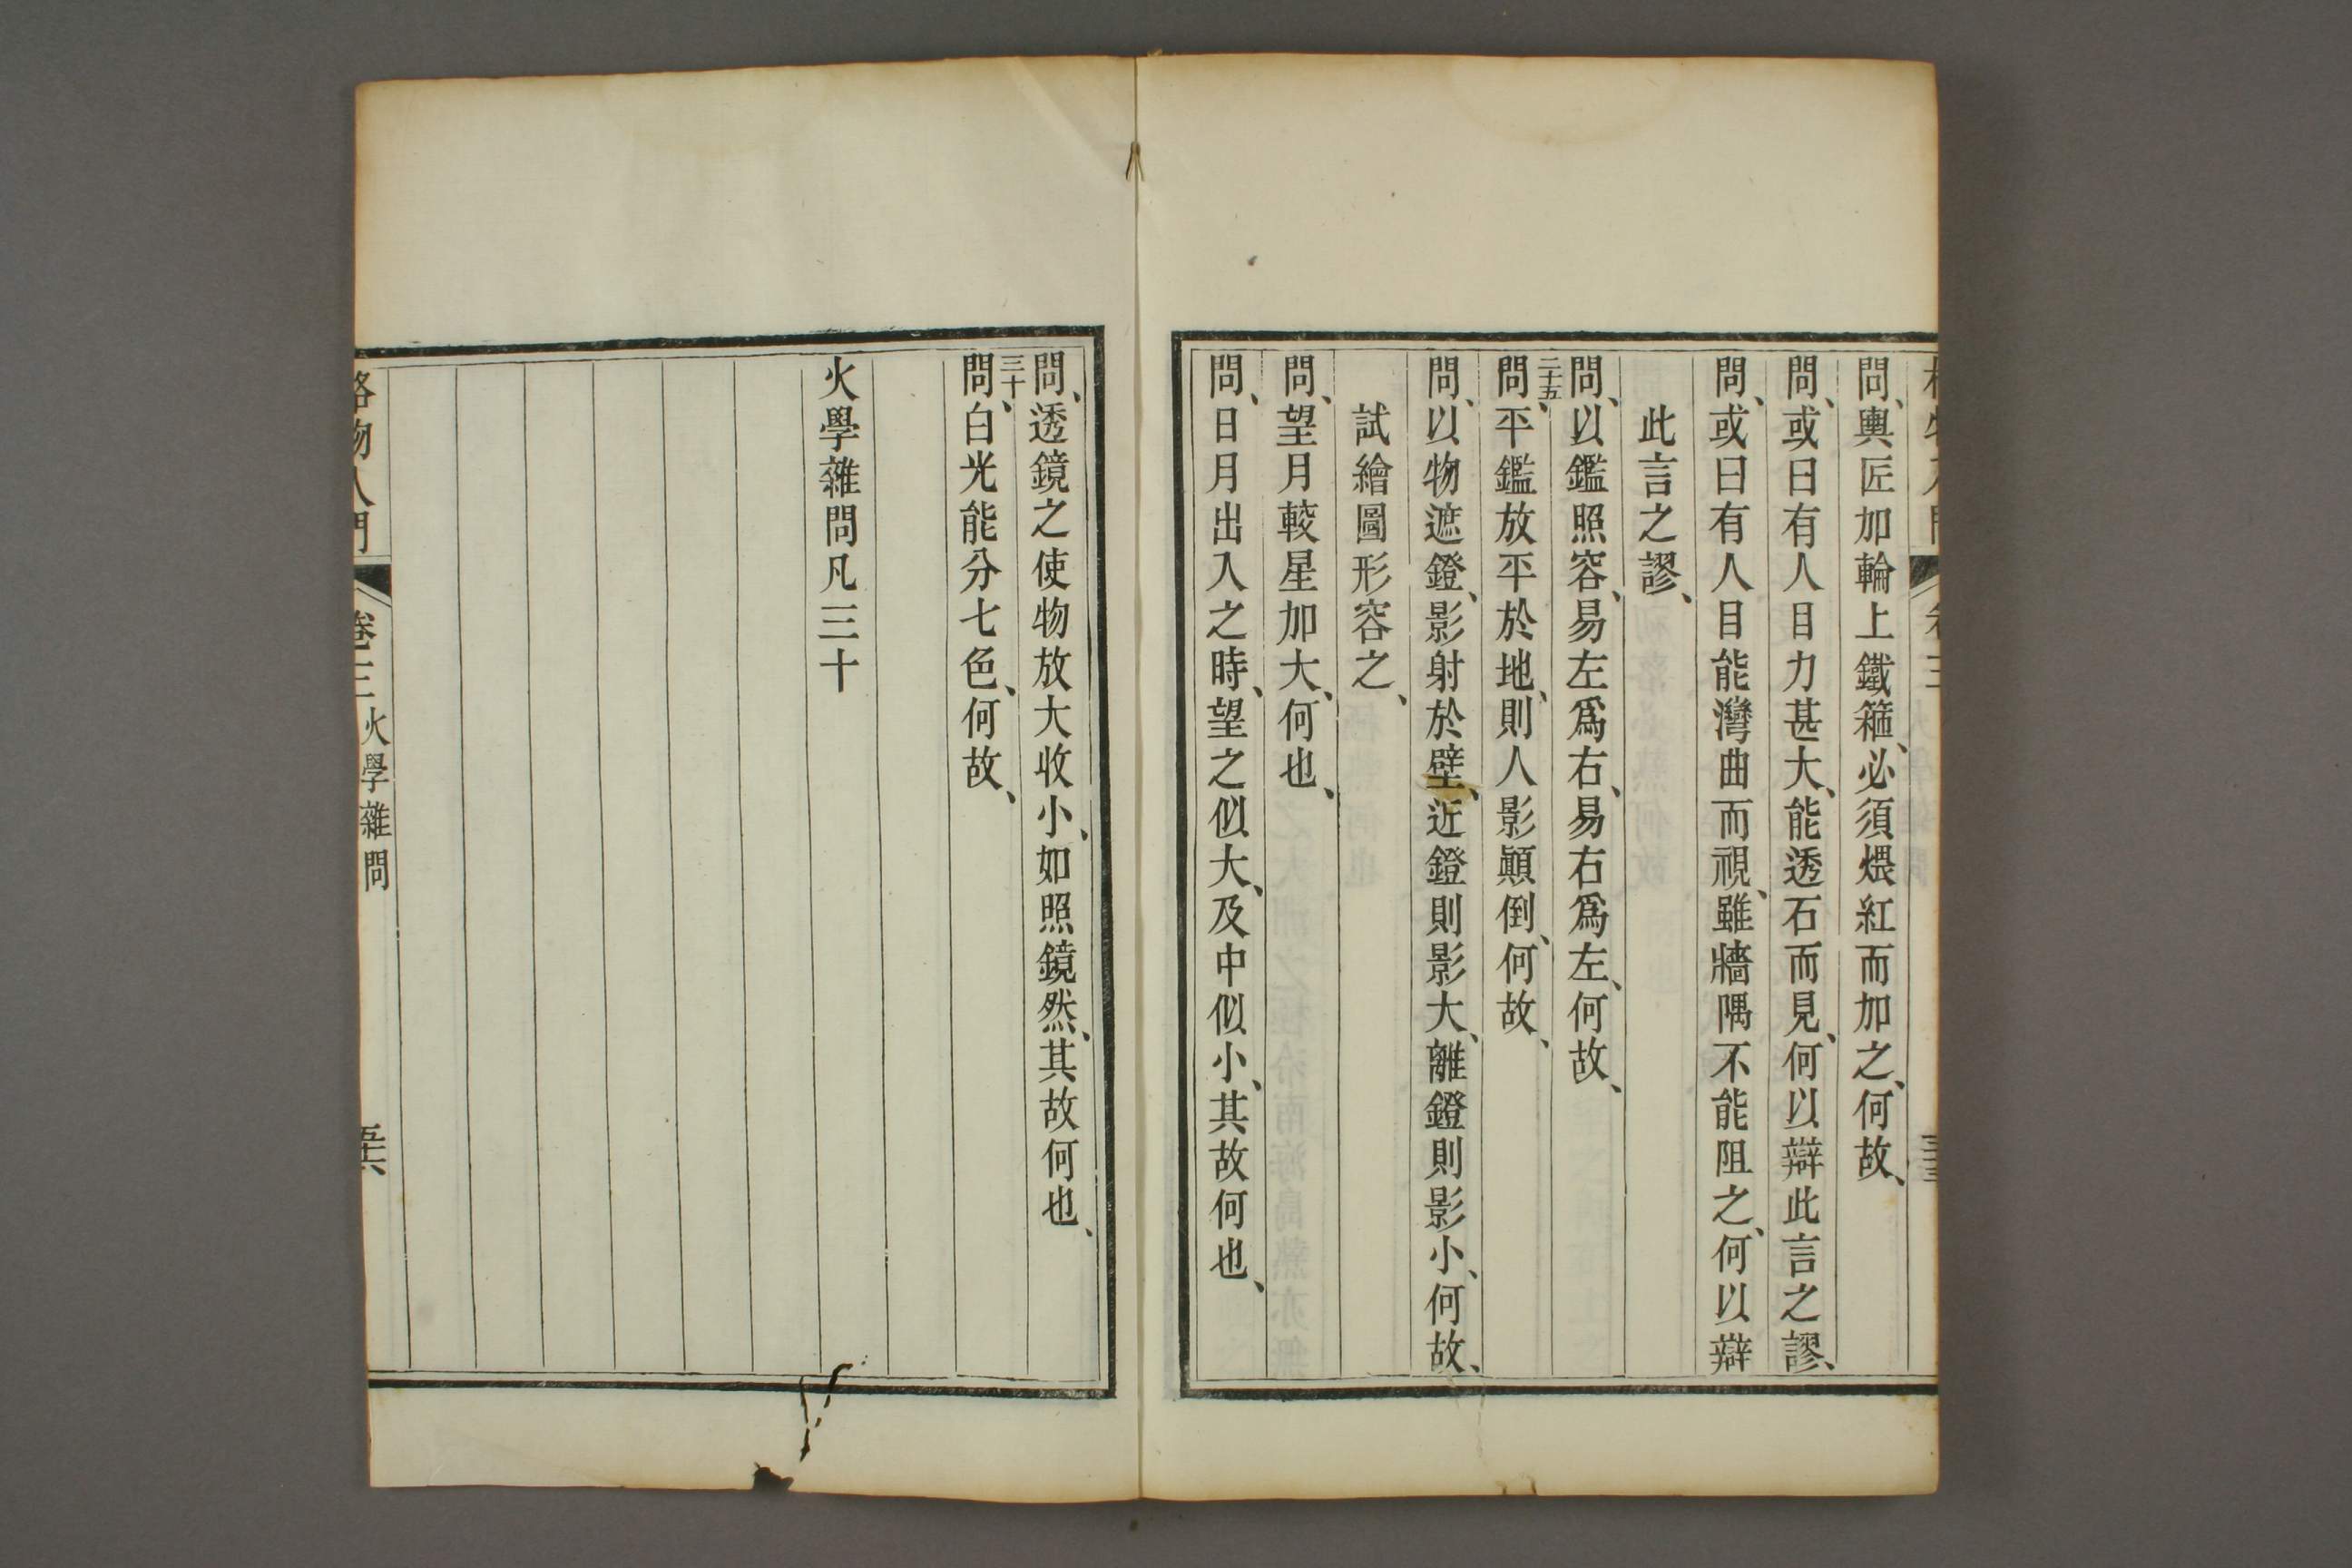 問、輿匠加輪上鐵箍、必須煨紅而加之、何故、
問、或曰有人目力甚大、能透石而見、何以辯此言之謬、
問、或曰有人目能灣曲而視、雖牆隅不能阻之、何以辯
此言之謬、
問、以鑑照容、易左爲右、易右爲左、何故、
二十五
問、平鑑放平於地、則人影顚倒、何故、
問、以物遮鐙、影射於壁、近鐙則影大、離鐙則影小、何故、
試繪圖形容之、
問、望月較星加大、何也、
問、日月出入之時、望之似大、及中似小、其故何也、
問、透鏡之使物放大收小、如照鏡然、其故何也、
三十
問、白光能分七色、何故、
火學雜問凡三十
格物入門
卷三
火學雜問